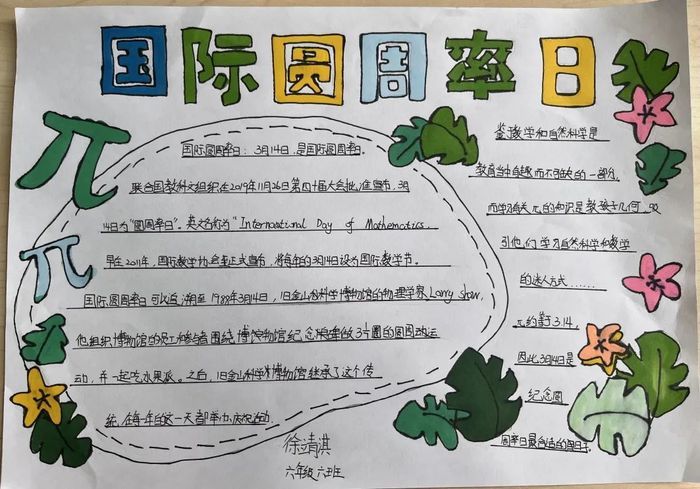 国际圆周率日
国际圆周率日：3月14日，是国际圆周率日。
联合国教科文组织在2019年11月26日第四十届大会批准宣布，3月
14日为“圆周率日”。英文名称为“International Day of Mathematics.
早在2011年，国际数学协会正式宣布，将每年的3月14日设为国际数学节。
国际圆周率日可以追溯至1988年3月14日，旧金山科学博物馆的物理学家Larry Shaw,
他组织博物馆的员工和参与者围绕博物馆纪念碑做3⅐圈的圆周运
动，并一起吃水果派。之后，旧金山科学博物馆继承了这个传
统，在每年的这一天都举办庆祝活动。
数学和自然科学是
教育当中有趣而不可缺的一部分，
而学习有关π的知识是教孩子几何、吸
引他们学习自然科学和数学
的迷人方式……
π约等于3.14，
因此3月14日是
纪念圆
周率日最合适的日子。
徐靖淇
六年级六班